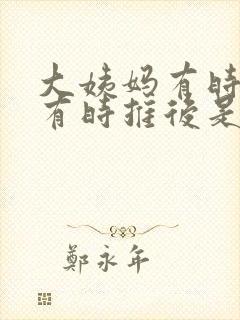 大姨妈有時
有時推後是
鄭永年